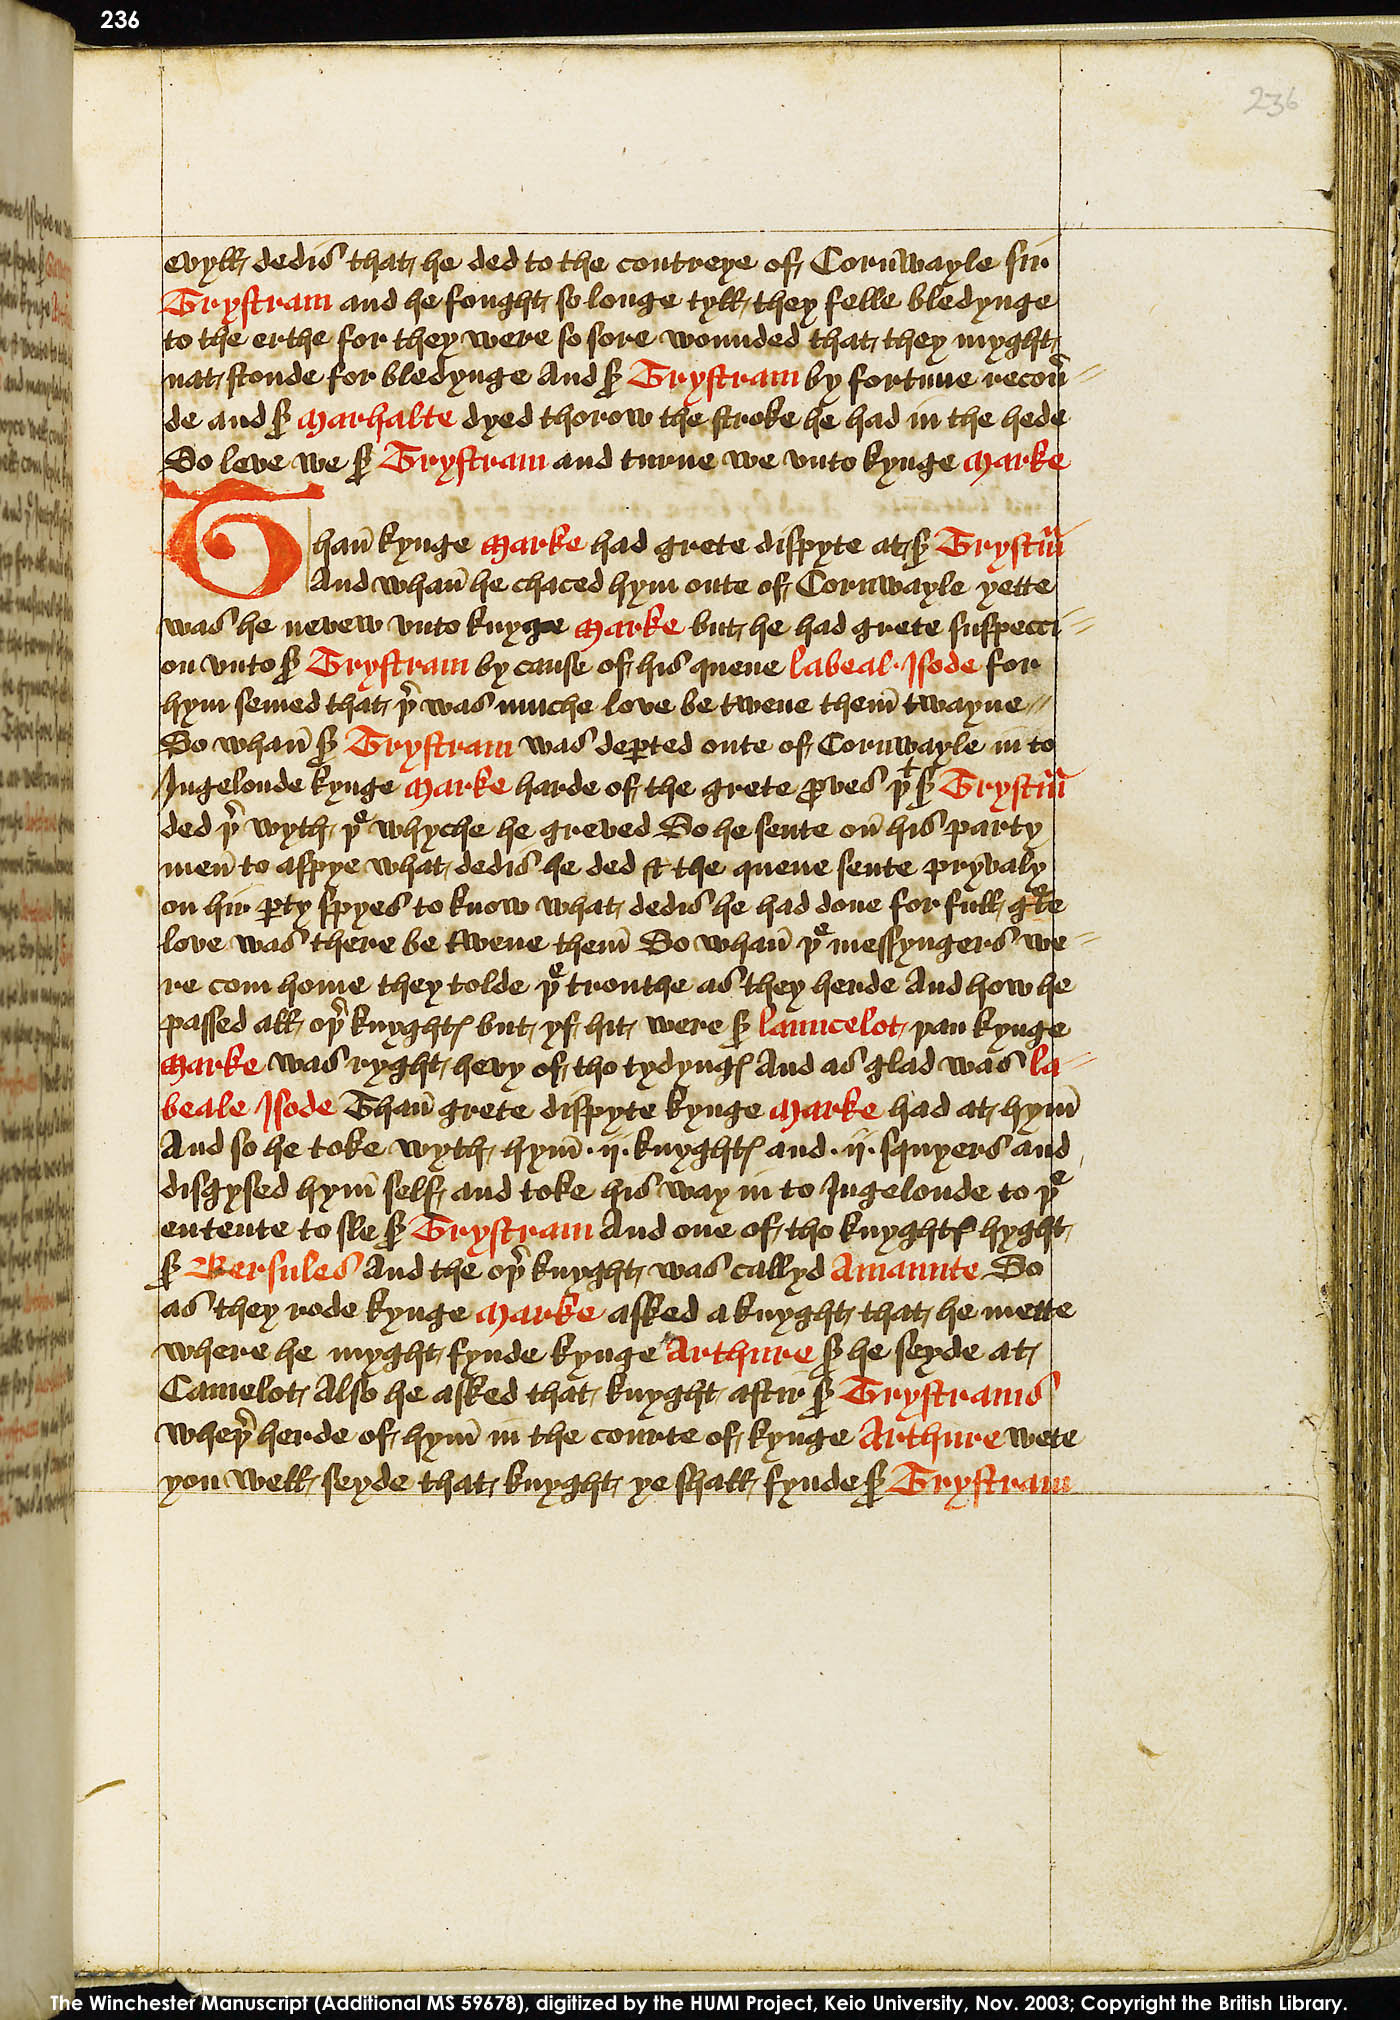 236
236
evyll dedis that he ded to the contreye of Cornwayle sir
Trystram and he fought so longe tyll they felle bledynge
to the erthe for they were so sore wounded that they myght
nat stonde for bledynge And sr Trystram by fortune recou̅
de and sr Marhalte dyed thorow the stroke he had in the hede
So leve we sr Trystram and turne we vnto kynge Marke
Than̅ kynge Marke had grete dispyte at sr Trystra̅m
And whan̅ he chaced hym oute of Cornwayle yette
was he nevew vnto knyge Marke but he had grete suspecci
on vnto sr Trystram by cause of his quene labeal Isode for
hym semed that þr was muche love be twene them̅ twayne
So whan̅ sr Trystram was deꝑted oute of Cornwayle in to
Ingelonde kynge Marke harde of the grete ꝓves þt sr Trystra̅m
ded þr wyth þe whyche he greved So he sente on̅ his party
men̅ to aspye what dedis he ded & the quene sente pryvaly
on hir ꝑty spyes to know what dedis he had done for full gͬte
love was there be twene them̅ So whan̅ þe messyngers we
re com home they tolde þe trouthe as they herde And how he
passed all oþr knyghtꝭ but yf hit were sr launcelot þan kynge
Marke was ryght hevy of tho tydyngꝭ And as glad was la
beale Isode Than̅ grete dispyte kynge Marke had at hym̅
And so he toke wyth hym̅ · ij · knyghtꝭ and · ij · squyers and
disgysed hym̅ self and toke his way in to Ingelonde to þe
entente to sle sr Trystram And one of tho knyghtꝭ hyght
sr Bersules And the oþr knyght was callyd Amaunte So
as they rode kynge Marke asked a knyght that he mette
where he myght fynde kynge Arthure sr he seyde at
Camelot Also he asked that knyght aftir sr Trystrams
wheþr herde of hym̅ in the courte of kynge Arthure wete
you well seyde that knyght ye shall fynde sr Trystram
The Winchester Manuscript (Additional MS 59678), digitized by the HUMI Project, Keio University, Nov. 2003; Copyright the British Library.